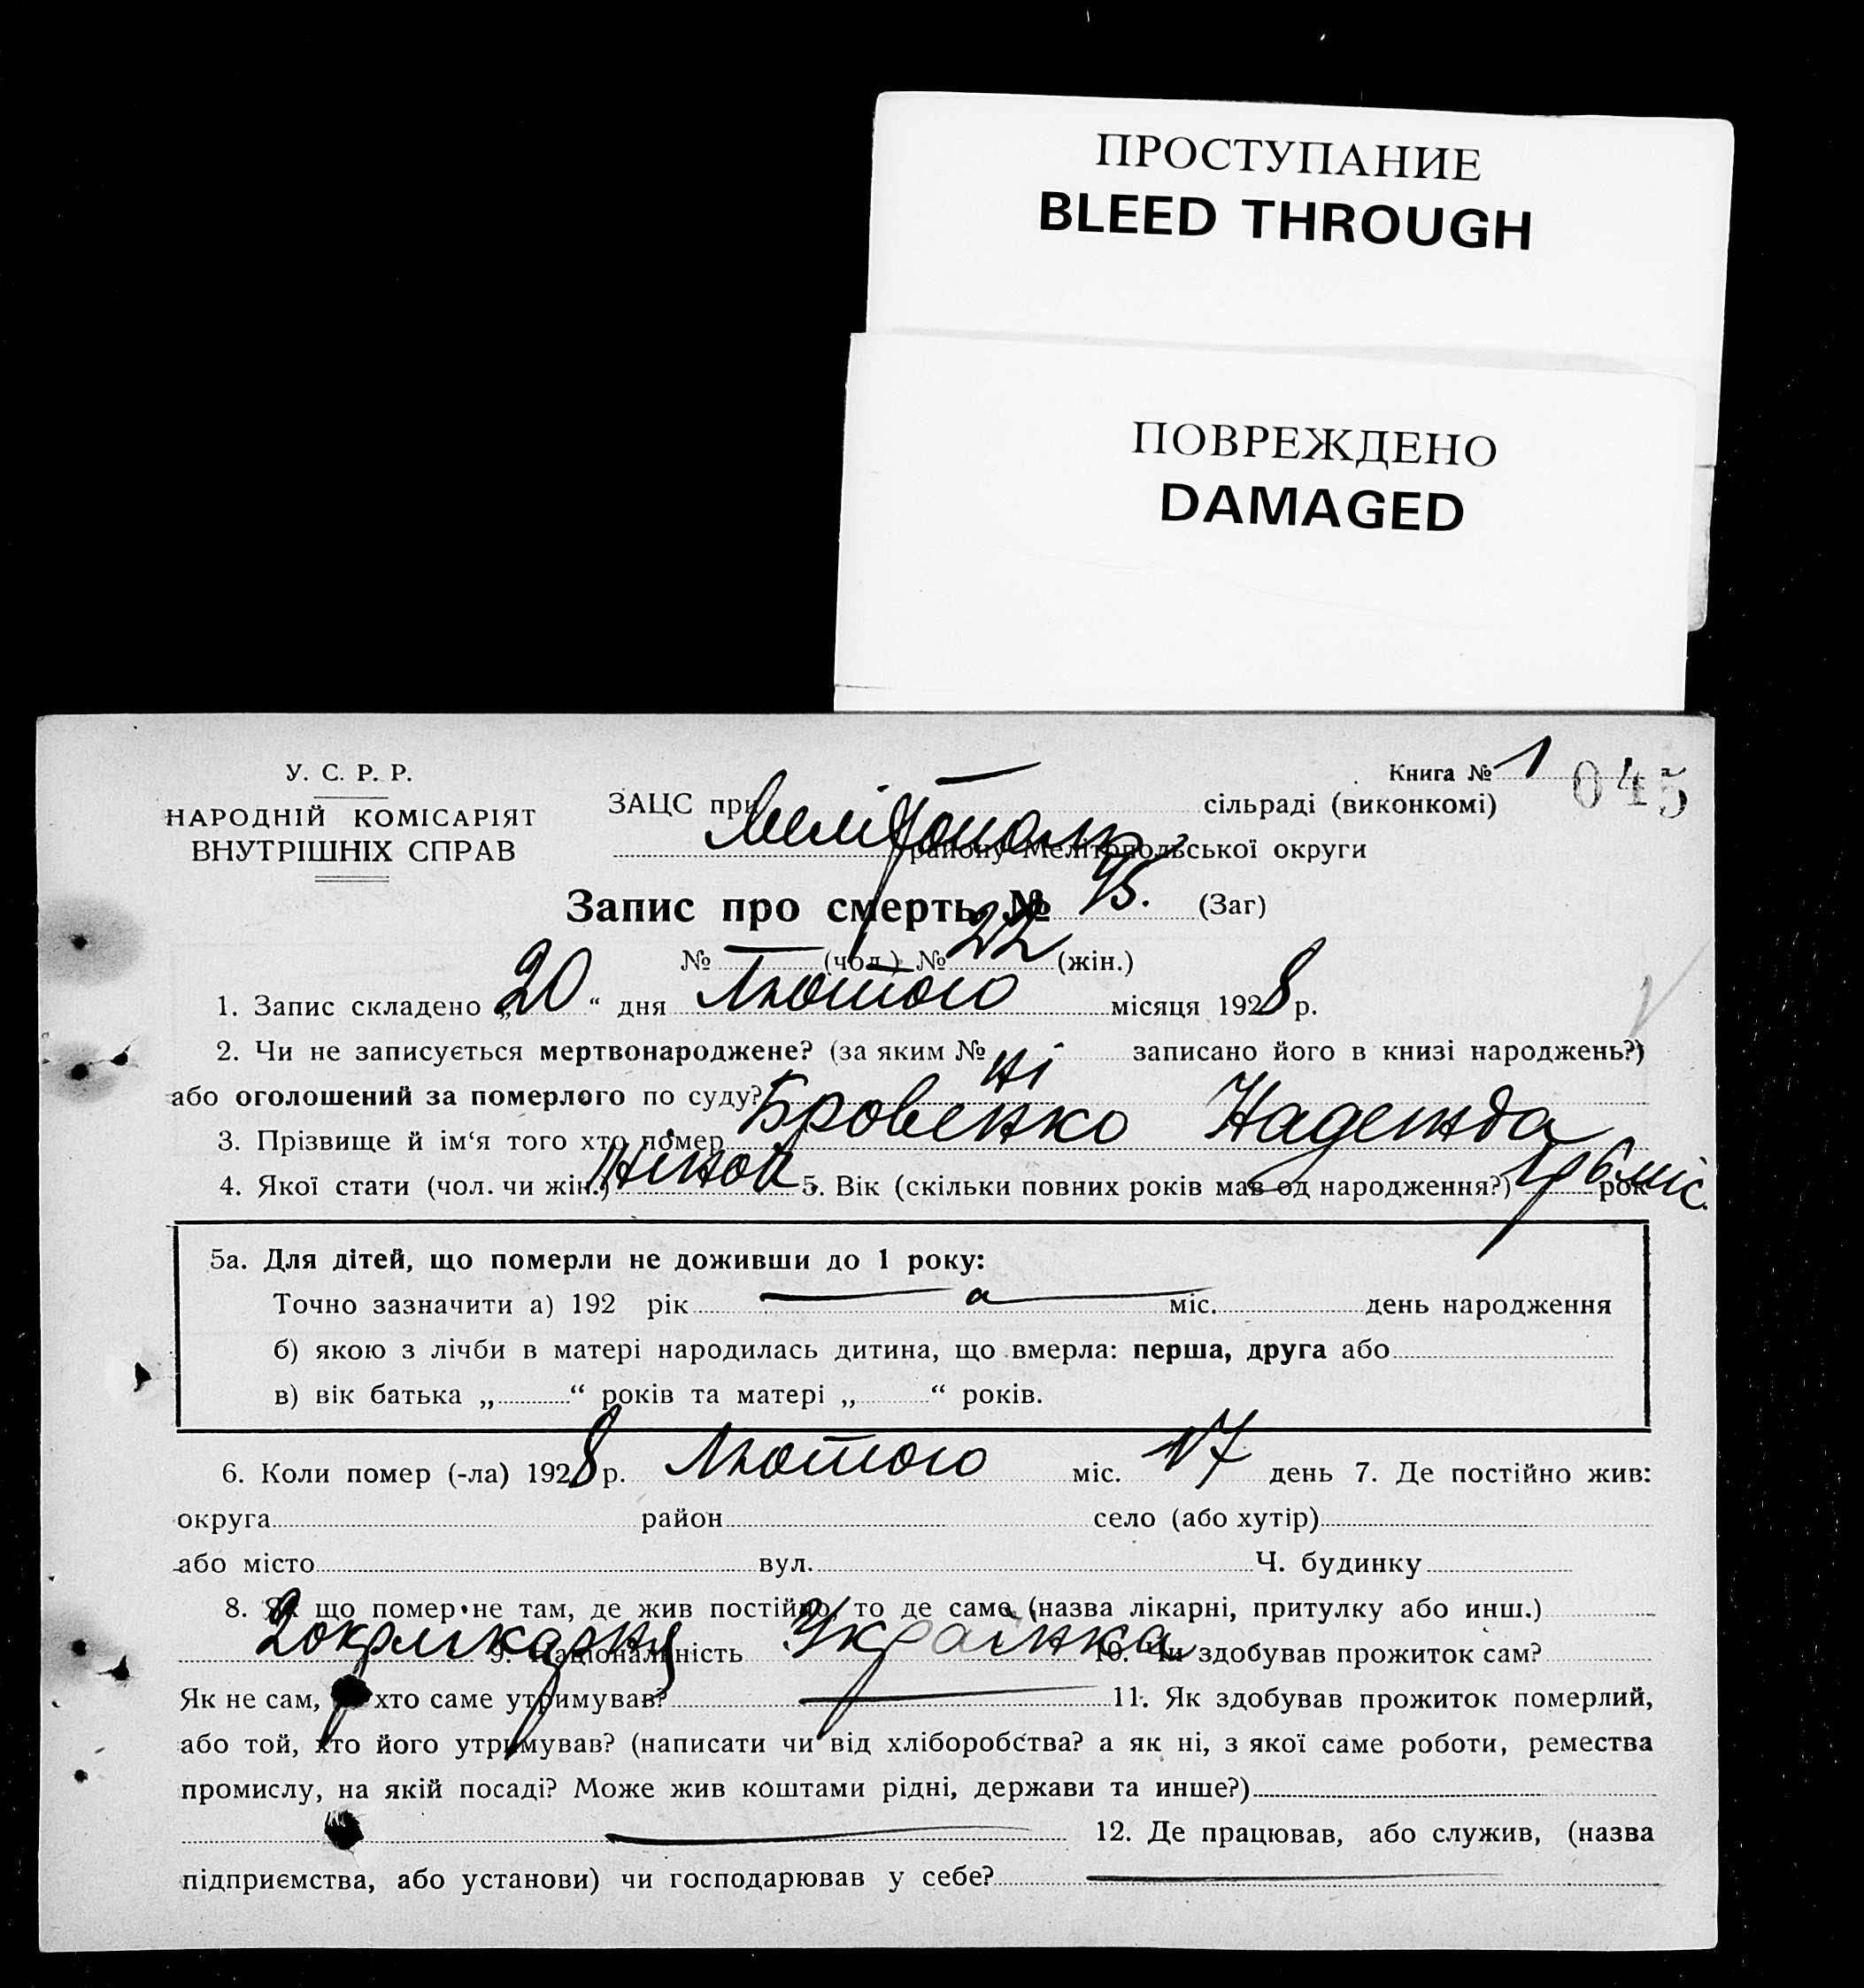 ПРОСТУПАНИЕ
BLEED THROUGH
ПОВРЕЖДЕНО
DAMAGED
У. С. Р. Р.
НАРОДНІЙ КОМІСАРІЯТ
ВНУТРІШНІХ СПРАВ
Книга № 1 045
ЗАЦС при сільраді (виконкомі)
Мелітополь району Мелітопольської округи
Запис про смерть № 45. (Заг)
№ — (чол.) № 22 (жін.)
1. Запис складено „20“ дня Лютого місяця 1928 р.
2. Чи не записується мертвонароджене? (за яким № ні записано його в книзі народжень?)
або оголошений за померлого по суду?
3. Прізвище й ім‘я того хто помер Бровенко Надежда
4. Якої стати (чол. чи жін.) жіноч. 5. Вік (скільки повних років мав од народження?) 1р 6 міс. рок
5а. Для дітей, що померли не доживши до 1 року:
Точно зазначити а) 192 рік міс. день народження
б) якою з лічби в матері народилась дитина, що вмерла: перша, друга або
в) вік батька „ “ років та матері „ “ років.
6. Коли помер (-ла) 1928 р. Лютого міс. 17 день 7. Де постійно жив:
округа район село (або хутір)
або місто вул. Ч. будинку
8. Як що помер не там, де жив постійно, то де саме (назва лікарні, притулку або инш.)
9. Національність Українка 10. Чи здобував прожиток сам?
Як не сам, хто саме утримував? — 11. Як здобував прожиток померлий,
або той, хто його утримував? (написати чи від хліборобства? а як ні, з якої саме роботи, ремества
промислу, на якій посаді? Може жив коштами рідні, держави та инше?)
— 12. Де працював, або служив, (назва
підприємства, або установи) чи господарював у себе? —